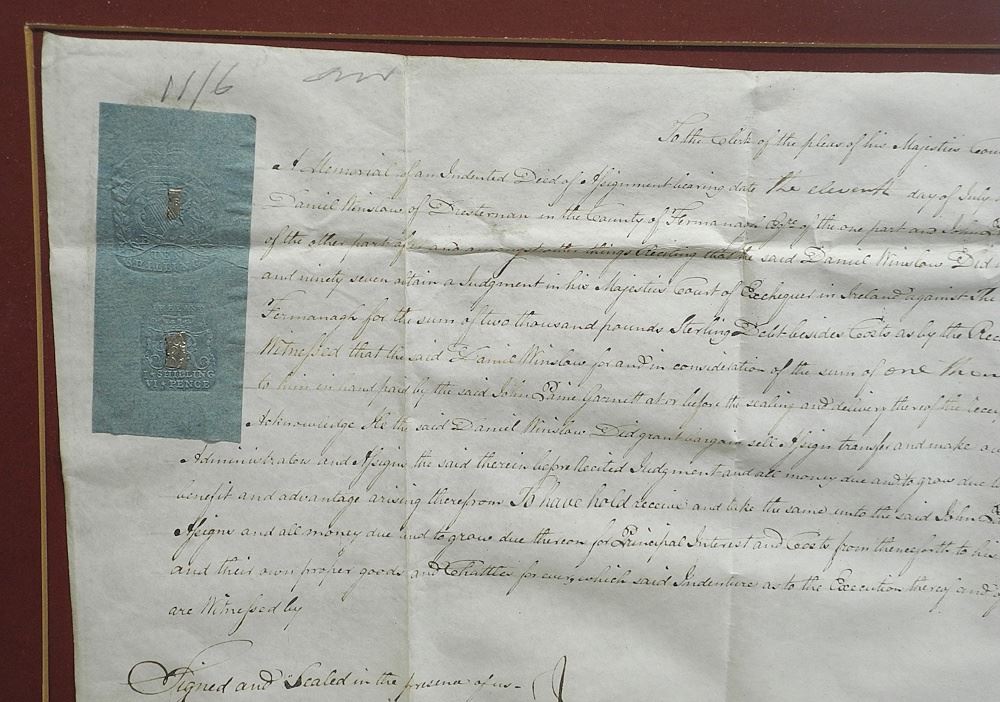 11/6
To the Clerk of the pleas of his Majesties Cou
A Memorial of an Indented Deed of Assignment bearing date the eleventh day of July
Daniel Winslow of Dresternan in the County of Fermanagh Esqre of the one part and John
of the other part after and amongst other things Reciting that he said Daniel Winslow Did
and ninety seven attain a Judgment in his Majesties Court of Exchequer in Ireland against The
Fermanagh for the sum of two thousand pounds Sterling Debt besides Costs as by the Rec
Witnessed that the said Daniel Winslow for and in consideration of the sum of one
to him in hand paid by the said John Paine Garnett at or before the sealing and delivery thereof the
Acknowledge He the said Daniel Winslow Did grant bargain sell Assign transfer and make
Administrators and Assigns the said therein before Recited Judgment and all money due and to grow due
benefit and advantage arising therefrom To have hold receive and take the same unto the said John
Assigns and all money due and to grow due thereon for Principal Interest and Costs from thenceforth to his
and their own proper goods and Chattles for ever, which said Indenture as to the Execution thereof and
are Witnessed by
Signed and Sealed in the presence of us
SHILLING
SHILLING
VI PENCE